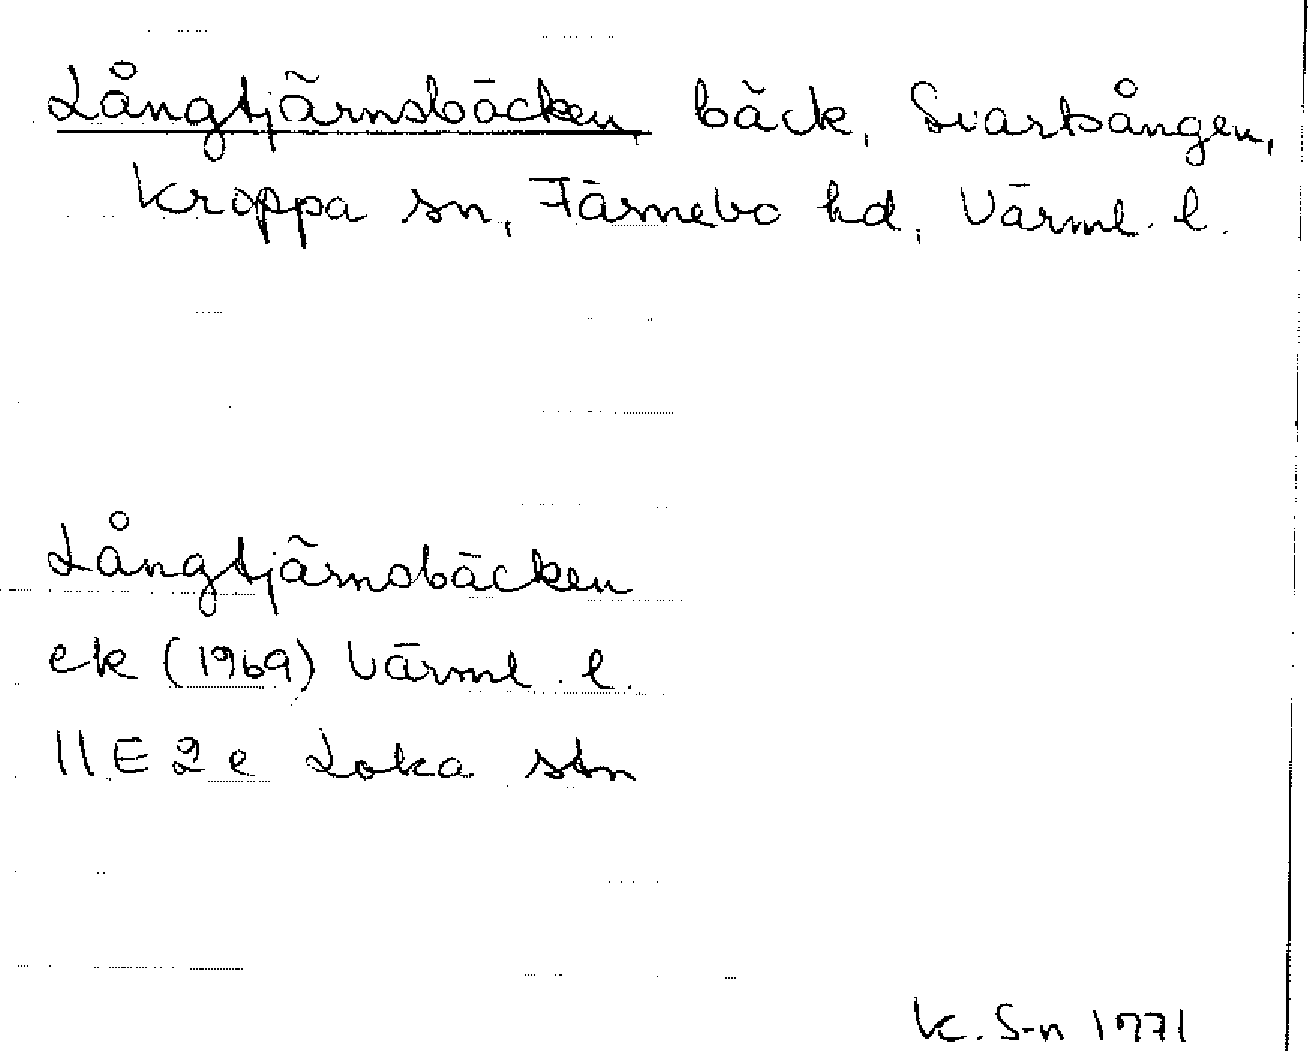 Långtjärnsbäcken bäck, Svartsången,
Kroppa sn, Färnebo hd, Värml. l.
Långtjärnsbäcken
ek (1969) Värml. l.
11E2e Loka stn
K. S-n 1971